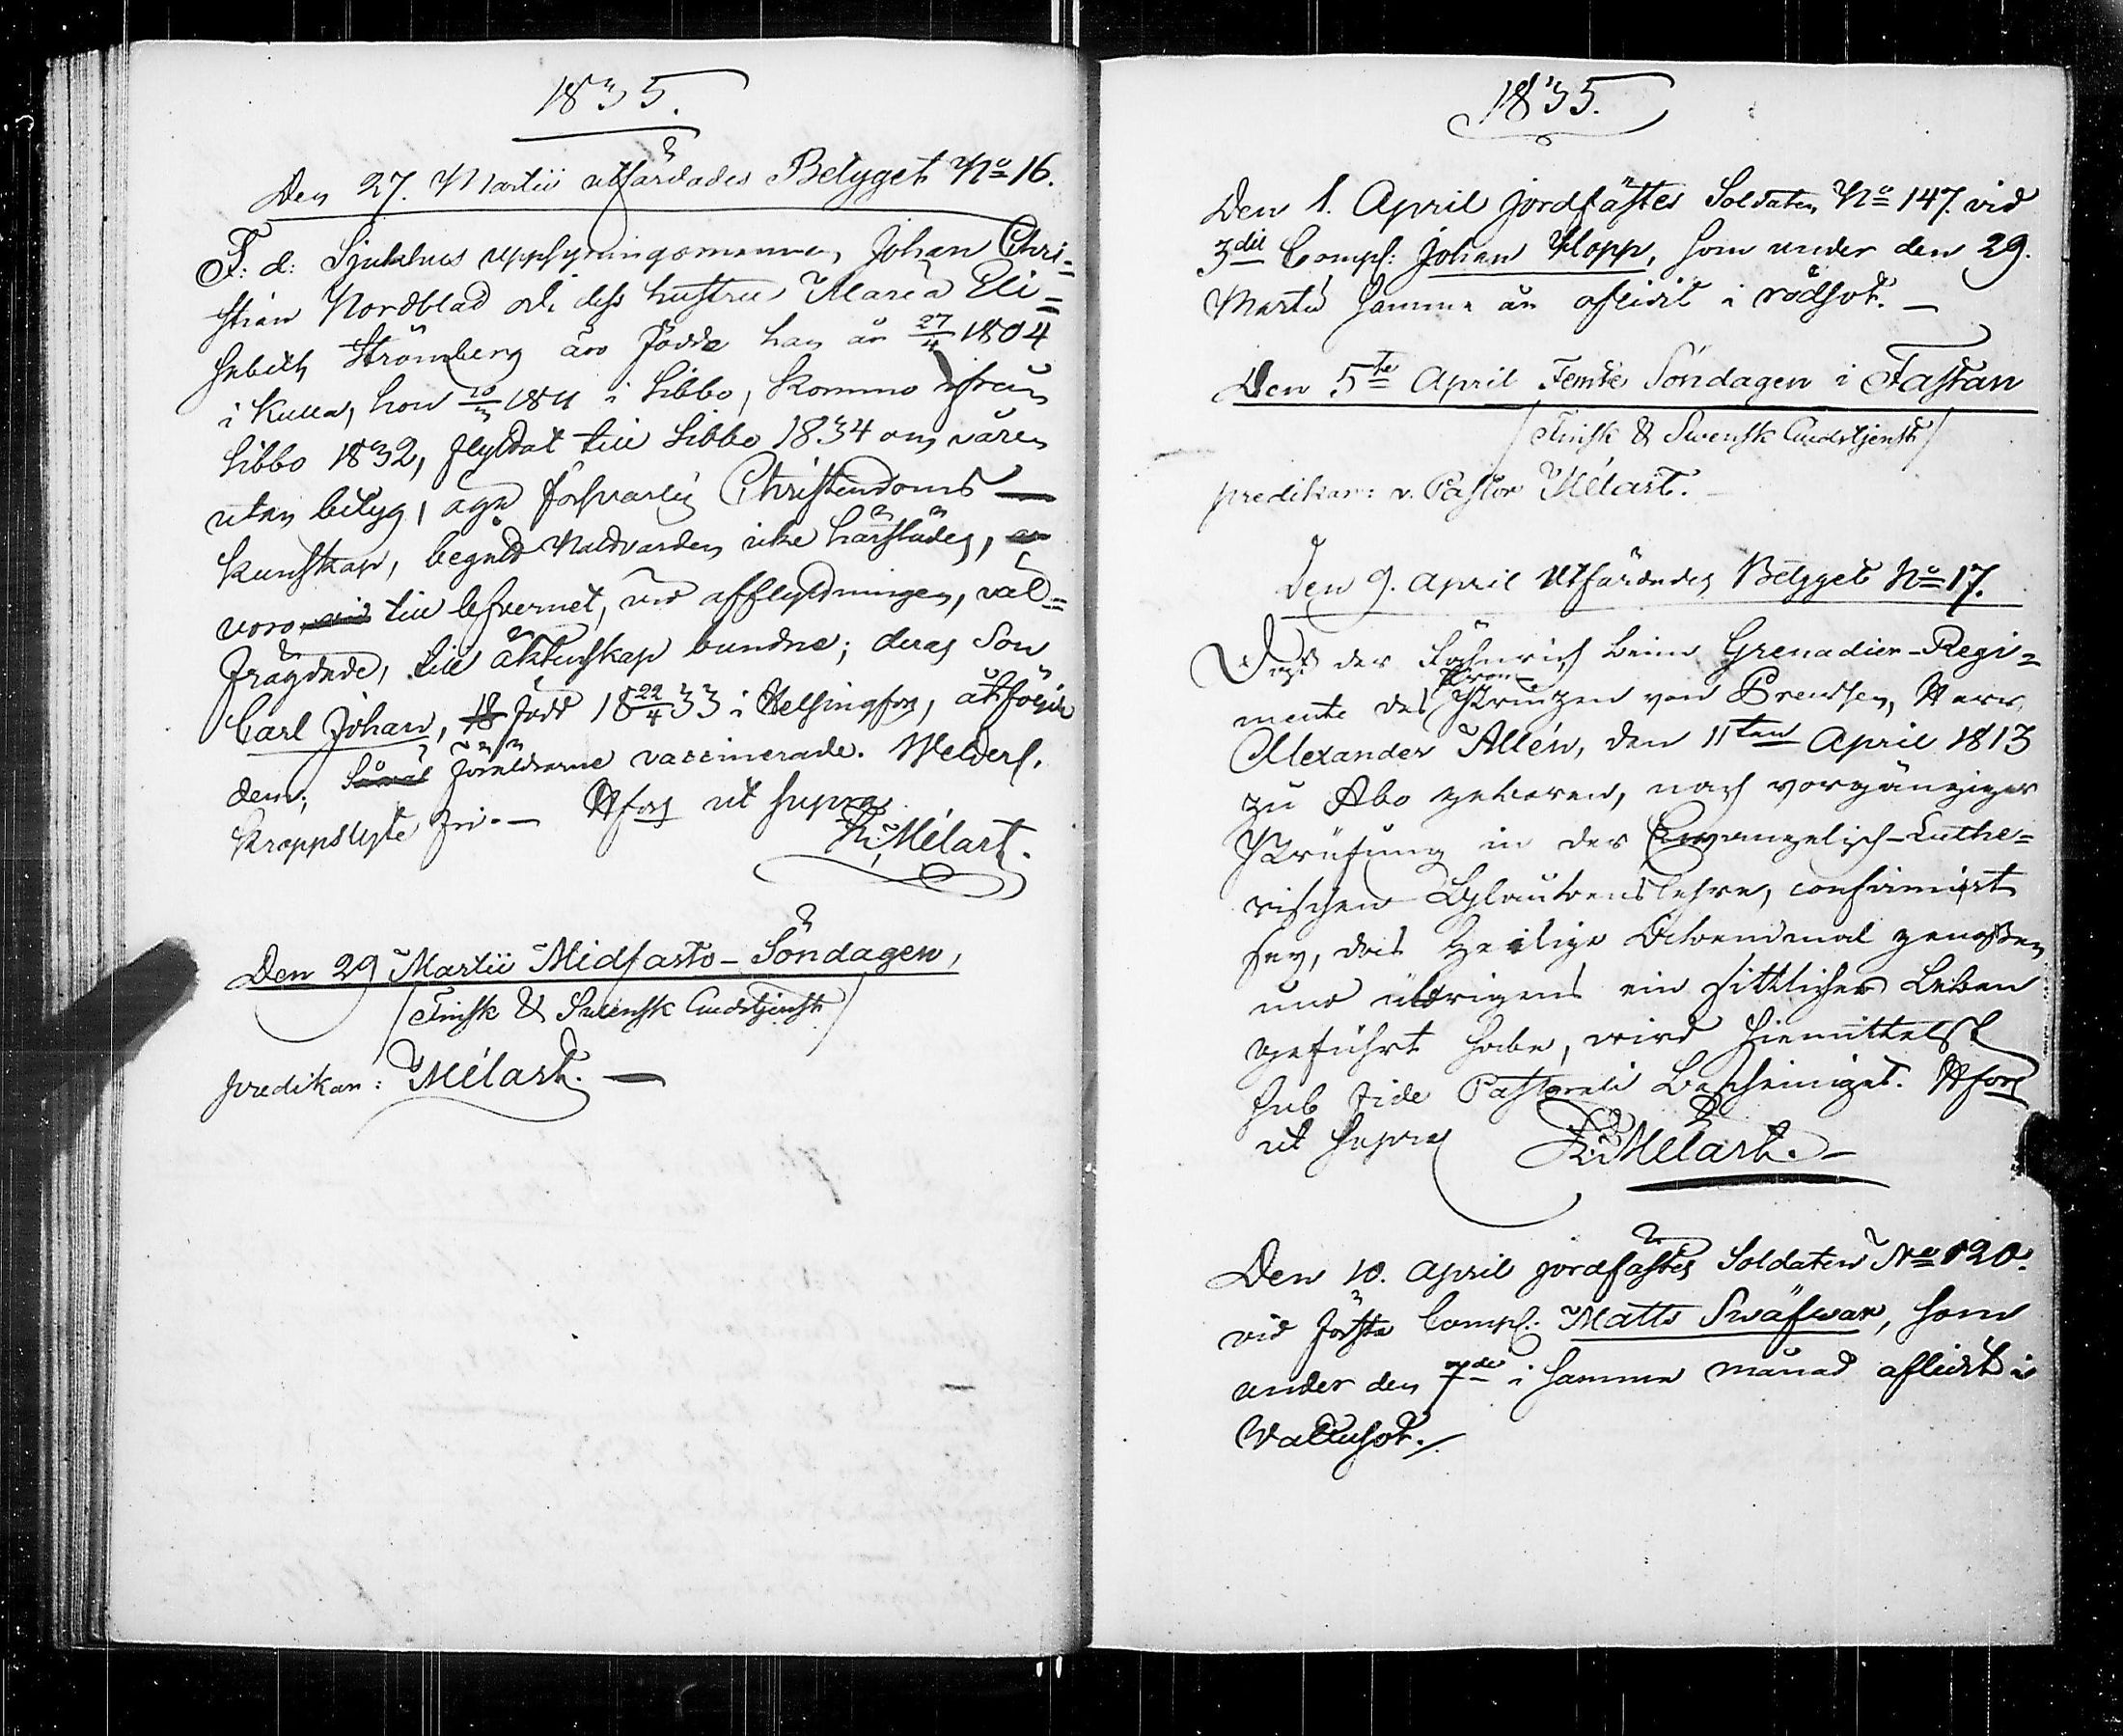 1835.
Den 27. Martii utfärdades Betyget No 16.
F: d: Sjukhus uppsyningsmannen Johan Chri-
stian Nordblad och dess hustru Maria Eli-
sabeth Strömberg äro födde han år 27/4 1804
i Kulla, hon 1811 i Sibbo, kommo ifrån
Sibbo 1832, flyttat till Sibbo 1834 om våren
utan betyg, äga försvarlig Christendoms
kunskap, begått Nattvarden icke härstädes,
voro till lefvernet, vid afflyttningen, väl-
frägdade, till äktenskap bundne; deras Son
Carl Johan, född 18 22/4 33 i Helsingfors, åtföljde
dem; föräldrarne vaccinerade. Welderf.
kroppslyte fri. — Hfors ut supra
K: Mélart.
Den 29 Martii Midfasto-Söndagen,
/Finsk & Swensk Gudstjenst/
predikan: Mélart. —
1835.
Den 1. April jordfästes Soldaten No 147. vid
3die Comp: Johan Klopp, som under den 29.
Martii samma år aflidit i rödsot. —
Den 5te April Femte Söndagen i Fastan
/Finsk & Swensk Gudstjenst/
predikan: v. Pastor Mélart.
Den 9. April Utfärdades Betyget No 17.
Dass der Fähnrich beim Grenadier-Regi-
mente des Kron-
Prinzen von Preussen, Herr
Alexander Allén, den 11ten April 1813
zu Abo geboren, nach vorgängiger
Prüfung in der Evangelisch-Luthe-
rischen Glaubenslehre, confirmirt
sey, das Heilige Abendmal genossen
und übrigens ein sittliches Leben
geführt habe, wird hiemittelst
sub fide Pastorali bescheiniget. Hfors
ut supra K: Mélart. —
Den 10. April jordfästes Soldaten No 120.
vid första Comp: Matts Swäfwar, som
under den 7de i samma månad aflidit i
Wattusot.